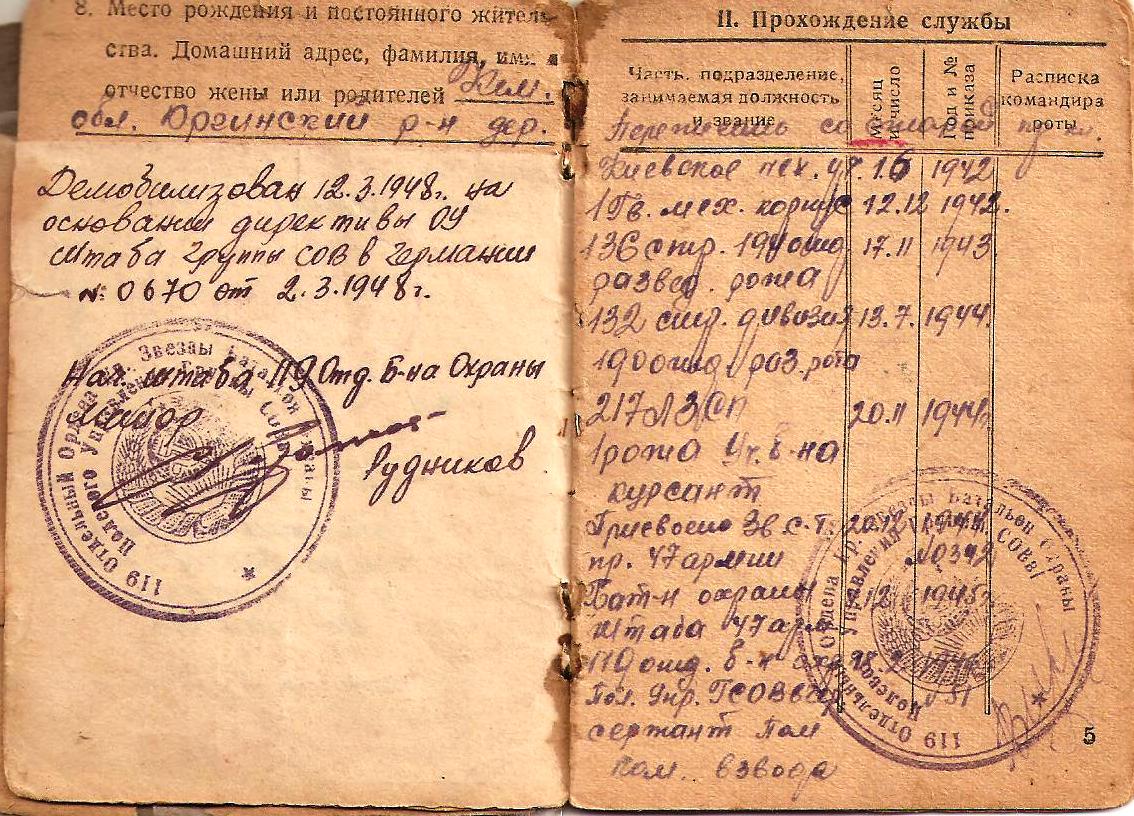 8. Место рождения и постоянного житель-
ства. Домашний адрес, фамилия, имя и
отчество жены или родителей Кем.
обл. Юргинский р-н дер.
Демобилизован 12.3.1948г. на
основании директивы ОУ
штаба Группы СОВ в Германии
№ 0670 от 2.3.1948г.
Нач. штаба 119 Отд. Б-на Охраны
Майор
Рудников
119 Отдельный Ордена Кр. Звезды Батальон Охраны
Полевого Управления Группы СОВ
II. Прохождение службы
Часть, подразделение, занимаемая должность и звание
Месяц и число
Год и № приказа
Расписка командира роты
Переписать со старой
Киевское пех. уч. 1.6 1942
1 Гв. мех. корпус 12.12 1942.
136 стр. 190 отд 17.11 1943
развед. рота
132 стр. дивизия 13.7. 1944.
190 отд раз. рота
217 АЗСП 20.11 1944г
1 рота Уч. б-на
курсант
Присвоено Зв. С-Т. 20.12 1944
пр. 47 армии №0342
Бат-н охраны 12 1945г
штаба 47 арм
119 отд. б-н охр
Пол. Упр. ГСОВвГер
сержант Пом
ком. взвода
119 Отдельный Ордена Кр. Звезды Батальон Охраны
Полевого Управления Группы СОВ
5